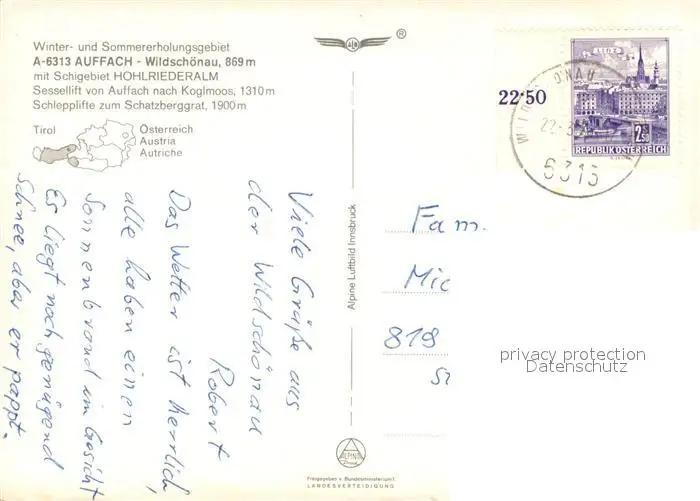 Winter- und Sommererholungsgebiet
A-6313 AUFFACH - Wildschönau, 869 m
mit Schigebiet HOHLRIEDERALM
Sessellift von Auffach nach Koglmoos, 1310 m
Schlepplifte zum Schatzberggrat, 1900 m
Tirol
Österreich
Austria
Autriche
®
Viele Grüße aus
der Wildschönau
Robert
Das Wetter ist herrlich,
alle haben einen
Sonnenbrand im Gesicht
Es liegt noch genügend
Schnee, aber er pappt.
Alpine Luftbild Innsbruck
ALPINE
Freigegeben v. Bundesministerium f.
LANDESVERTEIDIGUNG
22·50
LINZ
2.50
REPUBLIK ÖSTERREICH
6313
Fam.
Mic
819
privacy protection
Datenschutz